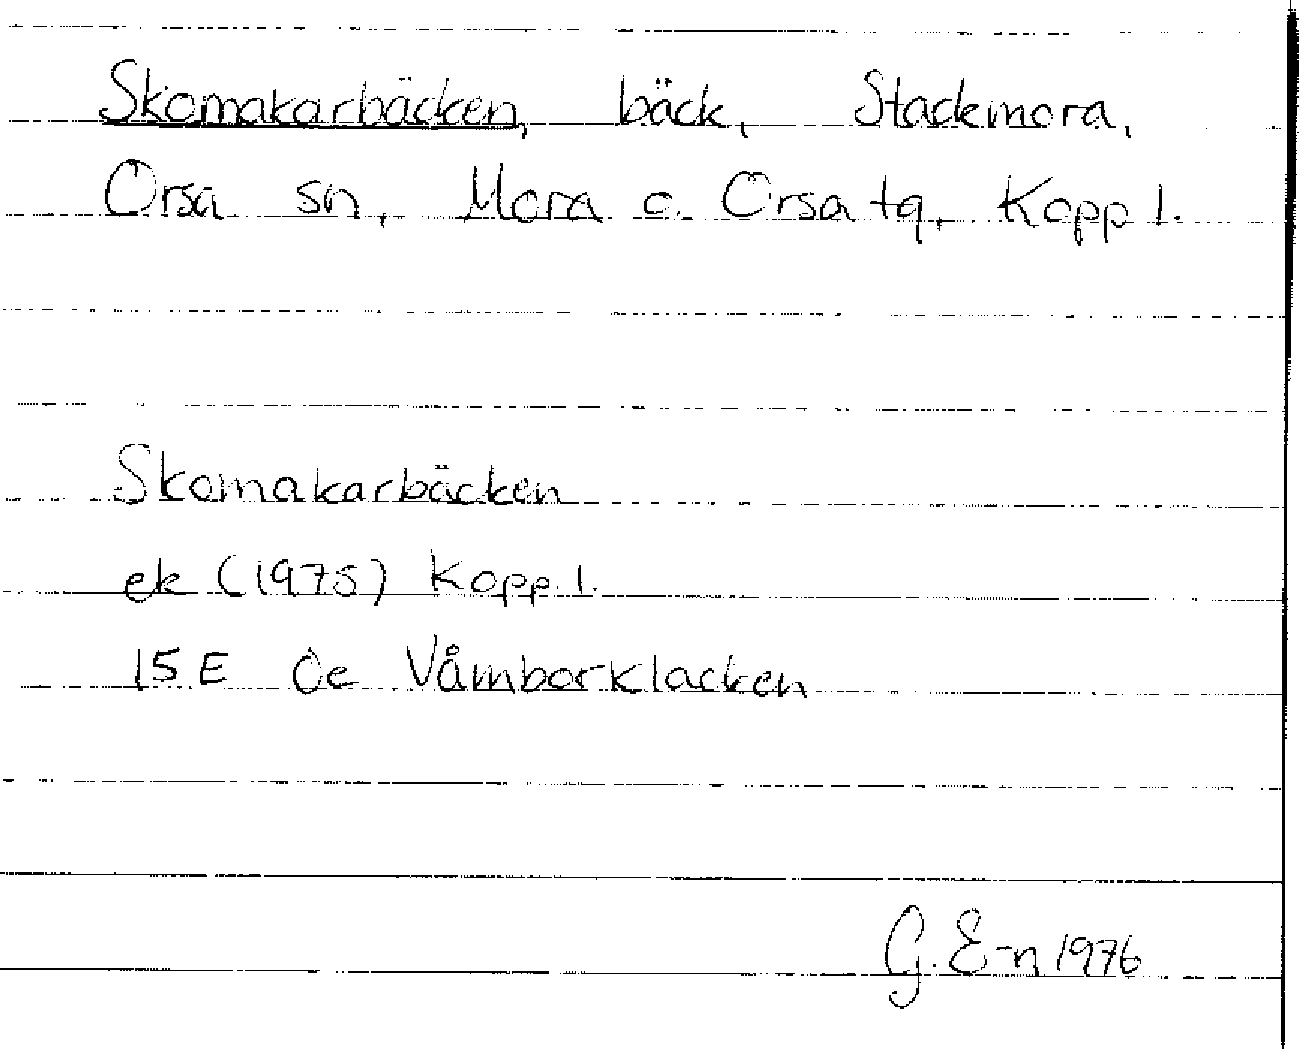 Skomakarbäcken, bäck, Stackmora,
Orsa sn, Mora o. Orsa tg, Kopp l.
Skomakarbäcken
ek (1975) Kopp. l.
15E 0e Våmborklacken
G. E-n 1976